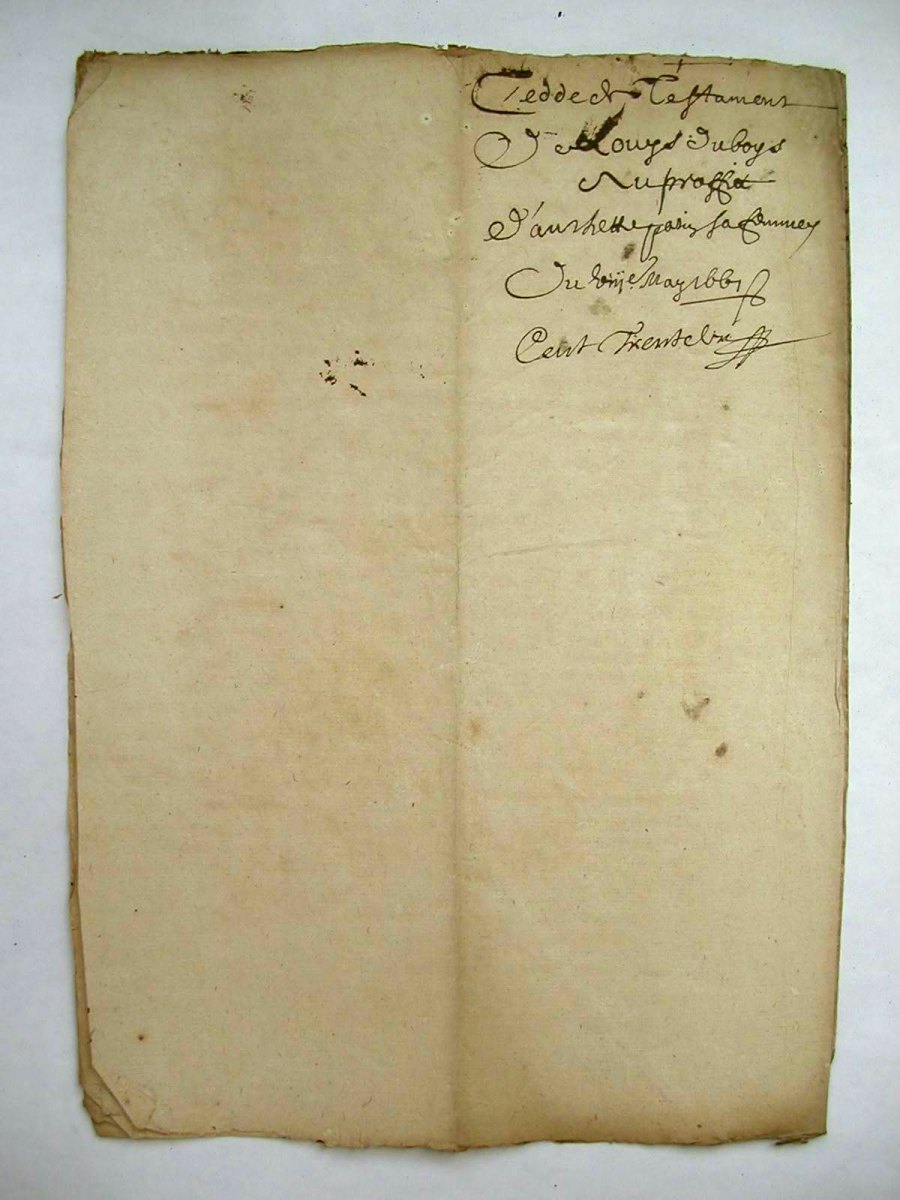 Cedde de Testament
De Louys duboys
Au proffit
d'anthette patin sa femme
Du xviije May 1661
Cent Trente